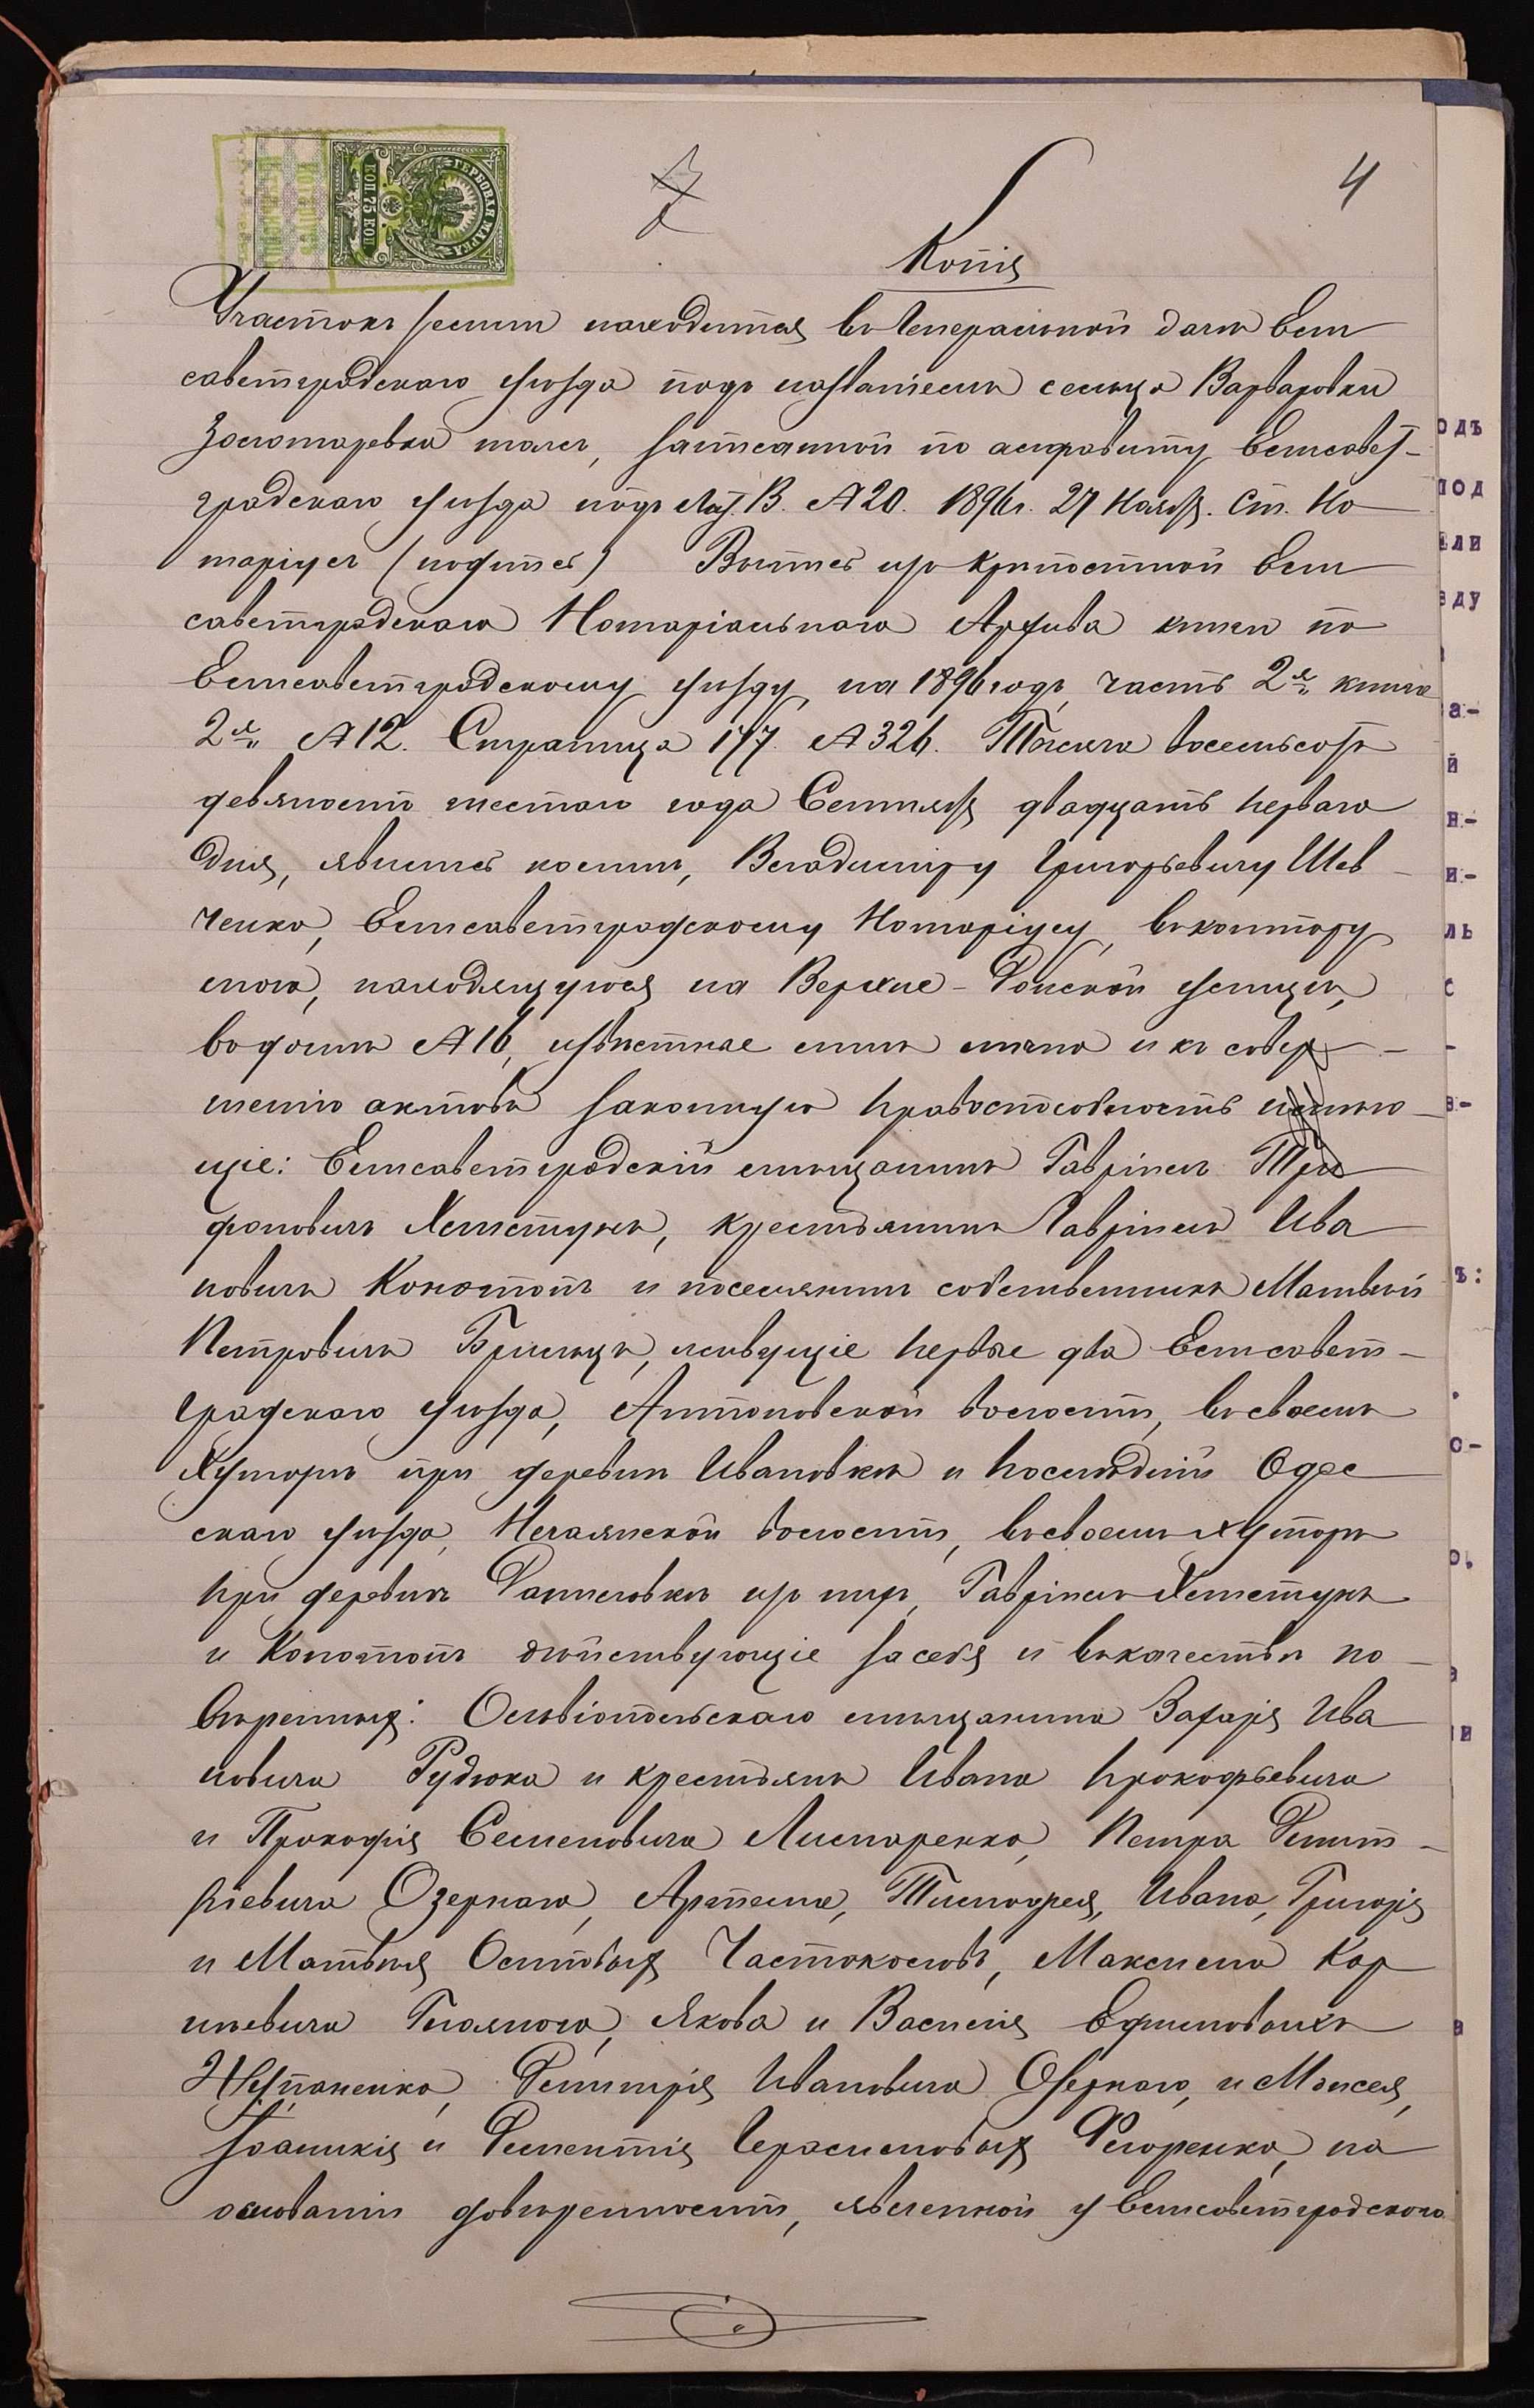 ГЕРБОВАЯ МАРКА
КОП. 75 КОП.
4
Копія
Участокъ земли находится въ Генеральной дачѣ Ели
саветградскаго уѣзда подъ названіемъ сельца Варваровки
Золотаревка тожъ, записанной по алфавиту Елисавет-
градскаго уѣзда подъ Лит. В. №20. 1896 г. 27 Нояб. Ст. Но
таріусъ (подпись) Выпись изъ крѣпостной Ели
саветградскаго Нотаріальнаго Архива книги по
Елисаветградскому уѣзду, на 1896 годъ, часть 2я книга
2я №12. Страница 177. №326. Тысяча восемьсотъ
девяносто шестого года Сентября двадцать перваго
дня, явились ко мнѣ, Владиміру Григорьевичу Шев
ченко, Елисаветградскому Нотаріусу, въ контору
мою, находящуюся на Верхне-Донской улицѣ,
въ домѣ №16, извѣстные мнѣ лично и къ совер-
шенію актовъ законную правоспособность имѣю-
щіе: Елисаветградскій мѣщанинъ Гавріилъ Три
фоновичъ Хемстукъ, крестьянинъ Гавріилъ Ива
новичъ Конотопъ и поселянинъ собственникъ Матвѣй
Петровичъ Брилицъ, живущіе первые два Елисавет-
градскаго уѣзда, Антоновской волости, въ своемъ
хуторѣ при деревнѣ Ивановкѣ и послѣдній Одес
скаго уѣзда, Нечаянской волости, въ своемъ хуторѣ
при деревнѣ Даниловкѣ изъ нихъ, Гавріилъ Хемстукъ
и Конотопъ дѣйствующіе за себя и въ качествѣ по-
вѣренныхъ: Ольвіопольскаго мѣщанина Захарія Ива
новича Рудюка и крестьянъ Ивана Прокофьевича
и Прокофія Семеновича Лисларенко, Петра Дмит-
ріевича Озернаго, Артема, Тимофея, Ивана, Григорія
и Матвѣя Осиповыхъ Частоколовъ, Максима Кор
нѣевича Гнаянаго, Якова и Василія Ефимовыхъ
Жупаненко, Дмитрія Ивановича Озернаго, и Моисея,
Іоанникія и Дементія Герасимовыхъ Флоренко, на
основаніи довѣренности, явленной у Елисаветградскаго